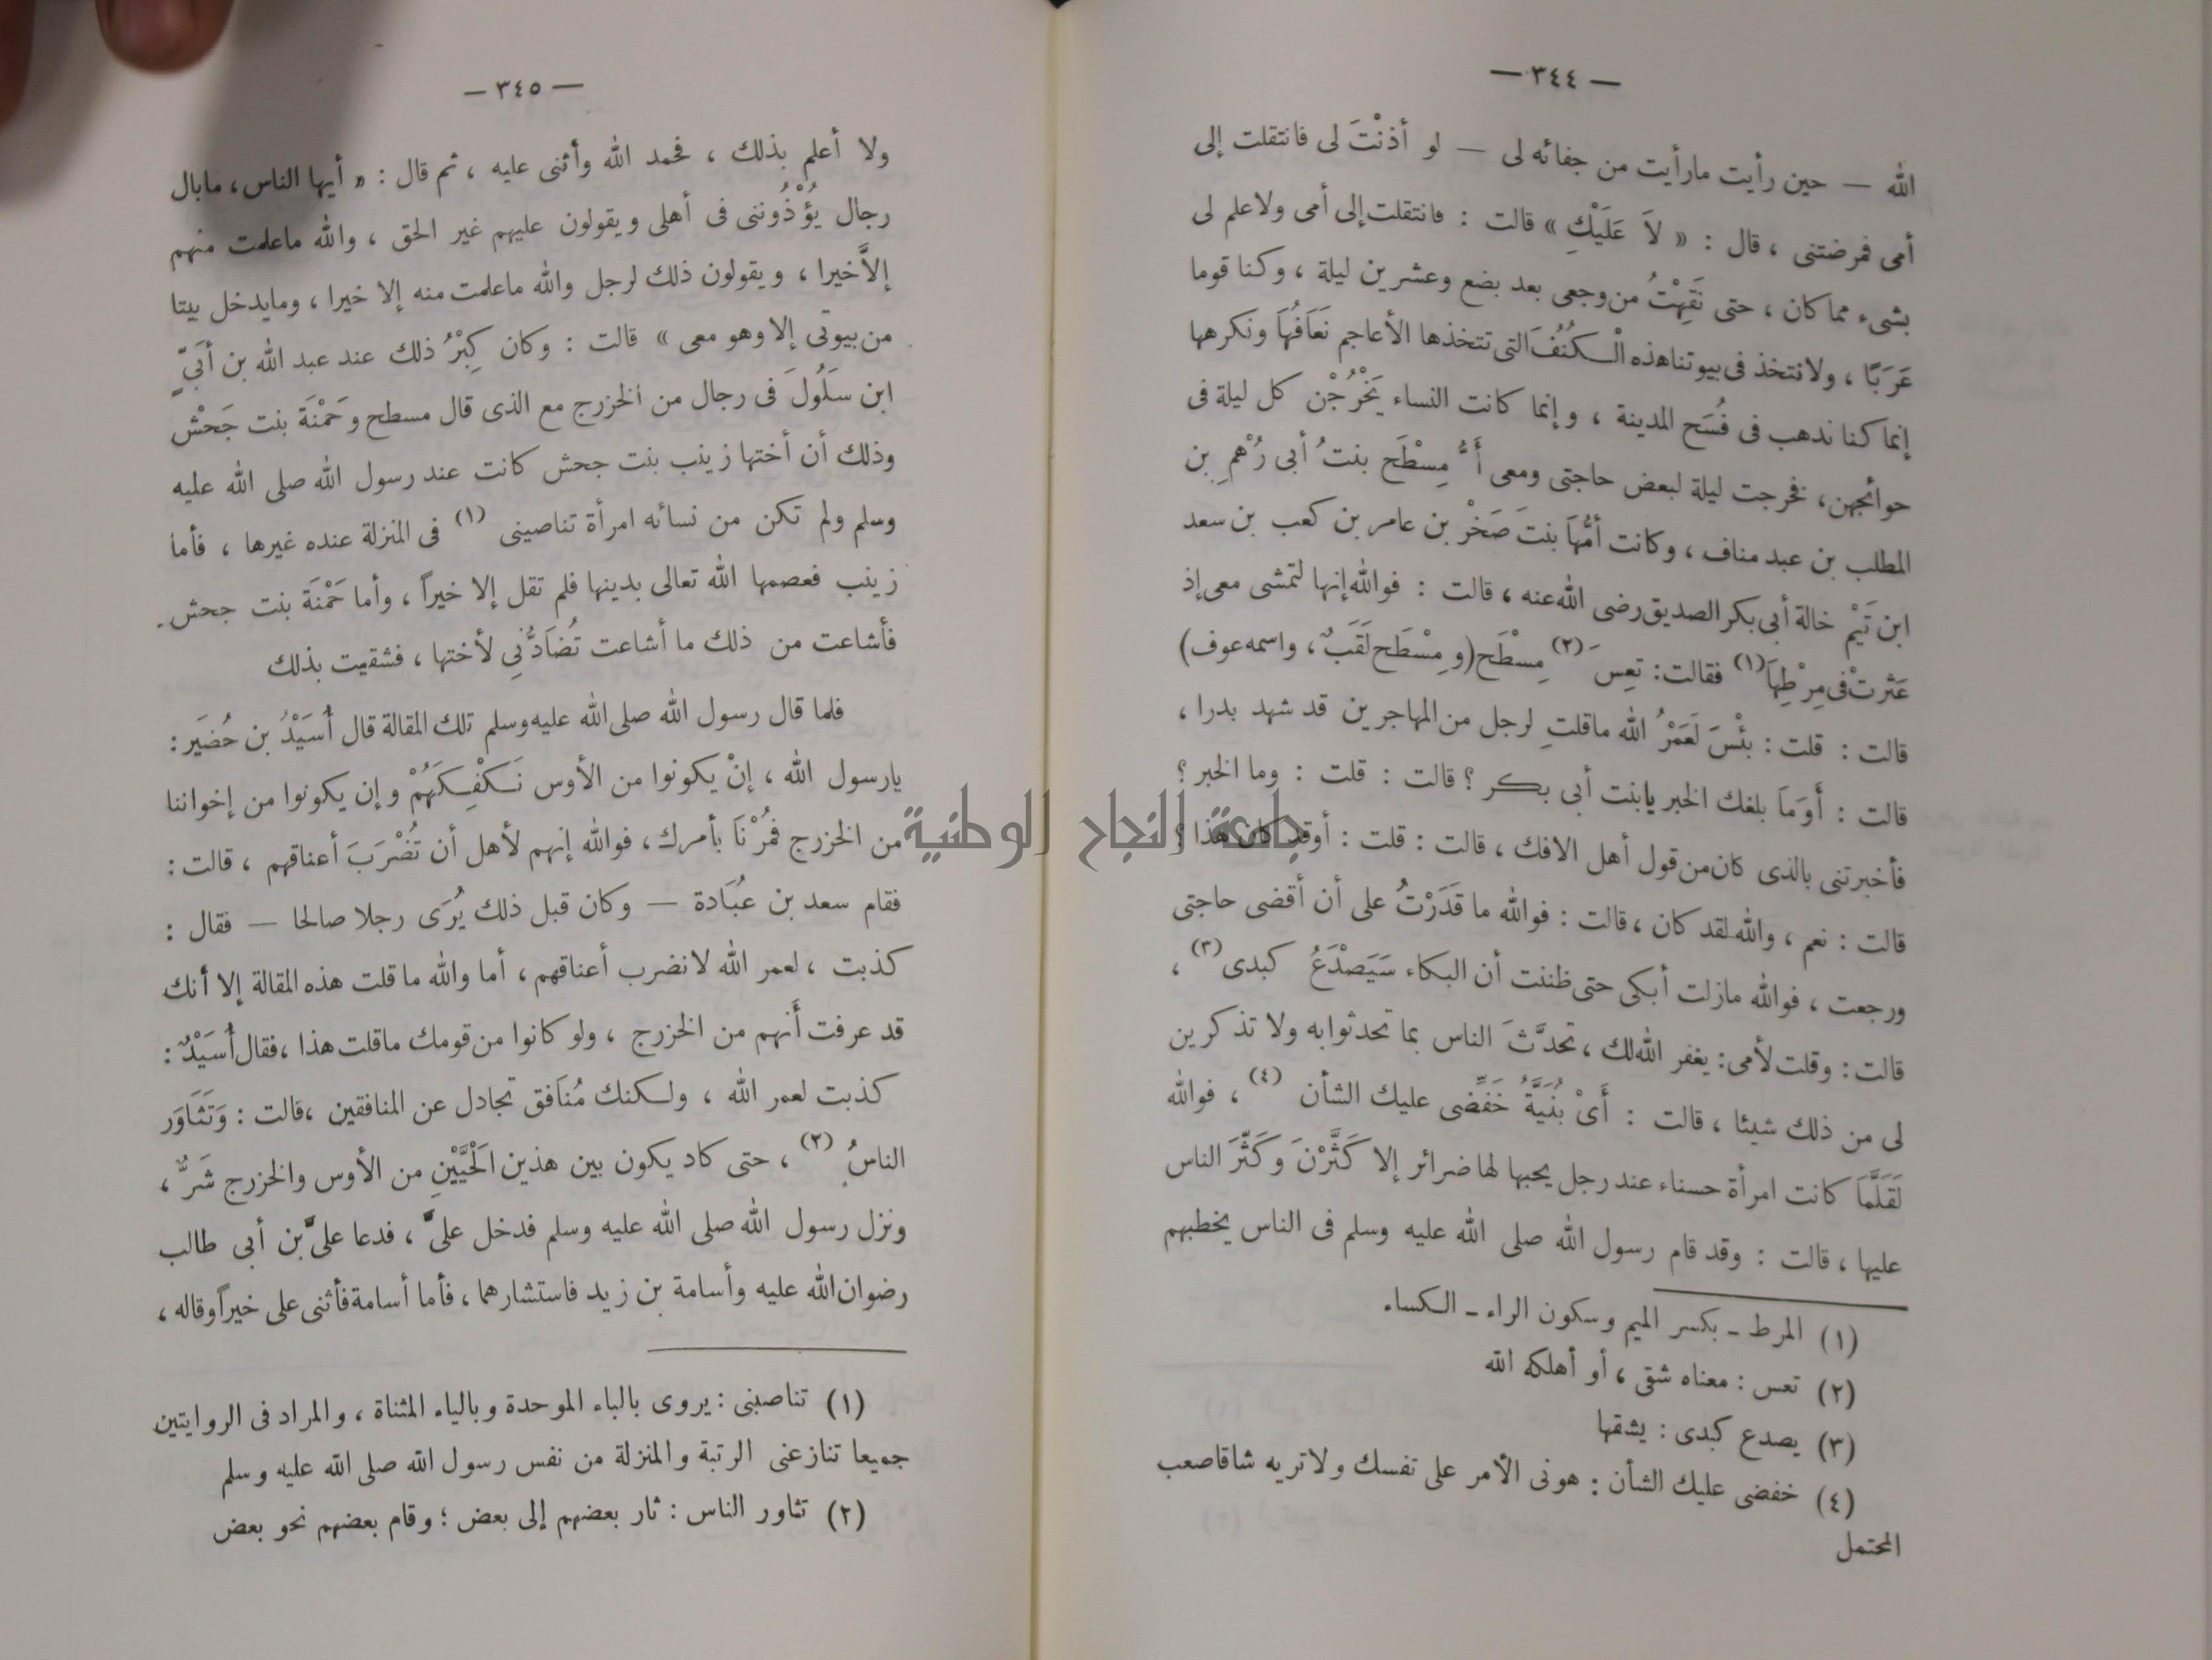 — ٣٤٤ —
الله — حين رأيت مارأيت من جفائه لى — لو أذنْتَ لى فانتقلت إلى
أمى فمرضتنى ، قال : « لاَ عَلَيْكِ » قالت : فانتقلت إلى أمى ولاعلم لى
بشىء مما كان ، حتى نَقِهْتُ من وجعى بعد بضع وعشرين ليلة ، وكنا قوما
عَرَبًا ، ولانتخذ فى بيوتنا هذه الْكُنُفَ التى تتخذها الأعاجم نَعَافُهَا ونكرهها
إنما كنا نذهب فى فُسَح المدينة ، وإنما كانت النساء يَخْرُجْن كل ليلة فى
حوائجهن، فخرجت ليلة لبعض حاجتى ومعى أُمُّ مِسْطَح بنتُ أبى رُهْمِ بن
المطلب بن عبد مناف ، وكانت أمُّهَا بنتَ صَخْر بن عامر بن كعب بن سعد
ابن تَيْم خالة أبى بكر الصديق رضى الله عنه ، قالت : فوالله إنها لتمشى معى إذ
عَثرتْ فى مِرْطِهَا (١) فقالت : تعِسَ (٢) مِسْطَح (ومِسْطَح لَقَبٌ ، واسمه عوف)
قالت : قلت : بئْسَ لَعَمْرُ الله ماقلتِ لرجل من المهاجرين قد شهد بدرا ،
قالت : أَوَمَا بلغك الخبر يابنت أبى بكر ؟ قالت : قلت : وما الخبر ؟
فأخبرتنى بالذى كان من قول أهل الافك ، قالت : قلت : أوقد كان هذا ؟
قالت : نعم ، والله لقد كان ، قالت : فوالله ما قَدَرْتُ على أن أقضى حاجتى
ورجعت ، فوالله مازلت أبكى حتى ظننت أن البكاء سَيَصْدَعُ كبدى (٣) ،
قالت : وقلت لأمى : يغفر الله لك ، تحدَّثَ الناس بما تحدثوا به ولا تذكرين
لى من ذلك شيئا ، قالت : أَىْ بُنَيَّةُ خَفِّضى عليك الشأن (٤) ، فوالله
لَقَلَّمَا كانت امرأة حسناء عند رجل يحبها لها ضرائر إلا كَثَّرْنَ وكَثَّرَ الناس
عليها ، قالت : وقد قام رسول الله صلى الله عليه وسلم فى الناس يخطبهم
(١) المرط ـ بكسر الميم وسكون الراء ـ الكساء
(٢) تعس : معناه شقى ، أو أهلكه الله
(٣) يصدع كبدى : يشقها
(٤) خفضى عليك الشأن : هونى الأمر على نفسك ولاتريه شاقا صعب
المحتمل
— ٣٤٥ —
ولا أعلم بذلك ، فحمد الله وأثنى عليه ، ثم قال : « أيها الناس ، مابال
رجال يُؤْذُوننى فى أهلى ويقولون عليهم غير الحق ، والله ماعلمت منهم
إلاَّ خيرا ، ويقولون ذلك لرجل والله ماعلمت منه إلا خيرا ، ومايدخل بيتا
من بيوتى إلا وهو معى » قالت : وكان كِبْرُ ذلك عند عبد الله بن أُبَىٍّ
ابن سَلُولَ فى رجال من الخزرج مع الذى قال مسطح وحَمْنَة بنت جَحْش
وذلك أن أختها زينب بنت جحش كانت عند رسول الله صلى الله عليه
وسلم ولم تكن من نسائه امرأة تناصينى (١) فى المنزلة عنده غيرها ، فأما
زينب فعصمها الله تعالى بدينها فلم تقل إلا خيراً ، وأما حَمْنَة بنت جحش .
فأشاعت من ذلك ما أشاعت تُضَادُّنِى لأختها ، فشقيت بذلك
فلما قال رسول الله صلى الله عليه وسلم تلك المقالة قال أُسَيْدُ بن حُضَير :
يارسول الله ، إنْ يكونوا من الأوس نَكْفِكَهُمْ وإن يكونوا من إخواننا
من الخزرج فمُرْنَا بأمرك ، فوالله إنهم لأهل أن تُضْرَبَ أعناقهم ، قالت :
فقام سعد بن عُبَادة — وكان قبل ذلك يُرَى رجلا صالحا — فقال :
كذبت ، لعمر الله لانضرب أعناقهم ، أما والله ما قلت هذه المقالة إلا أنك
قد عرفت أَنهم من الخزرج ، ولو كانوا من قومك ماقلت هذا ، فقال أُسَيْدٌ :
كذبت لعمر الله ، ولكنك مُنَافق تجادل عن المنافقين ، قالت : وَتَثَاوَر
الناسُ (٢) ، حتى كاد يكون بين هذين الْحَيَّيْنِ من الأوس والخزرج شَرٌّ ،
ونزل رسول الله صلى الله عليه وسلم فدخل علىَّ ، فدعا علىَّ بن أبى طالب
رضوان الله عليه وأسامة بن زيد فاستشارهما ، فأما أسامة فأثنى على خيراً وقاله ،
(١) تناصبنى : يروى بالباء الموحدة وبالياء المثناة ، والمراد فى الروايتين
جميعا تنازعنى الرتبة والمنزلة من نفس رسول الله صلى الله عليه وسلم
(٢) تثاور الناس : ثار بعضهم إلى بعض ؛ وقام بعضهم نحو بعض
جامعة النجاح الوطنية